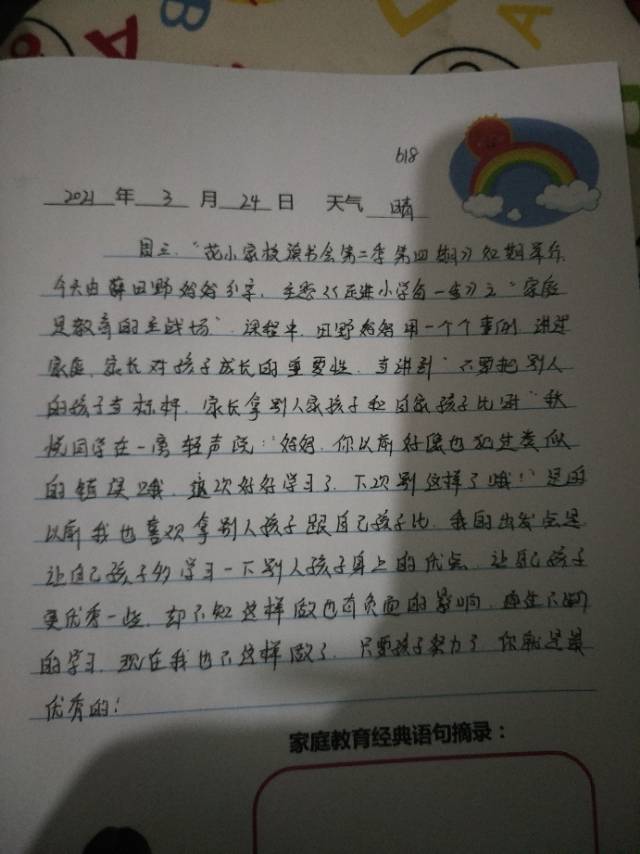 618
2021 年 3 月 24 日 天气 晴
周三，“花小家校读书会第二季第四期》如期举行，
今天由薛田野妈妈分享，主题《走进小学每一生》之“家庭
是教育的主战场”，课程中，田野妈妈用一个个事例，讲述
家庭、家长对孩子成长的重要性，当讲到“不要把别人
的孩子当标杆，家长拿别人家孩子和自家孩子比时”秋
悦同学在一旁轻声说：“妈妈，你以前好像也犯过类似
的错误哦，这次好好学习了，下次别这样了哦！”是的
以前我也喜欢拿别人孩子跟自己孩子比，我的出发点是
让自己孩子多学习一下别人孩子身上的优点，让自己孩子
更优秀一些，却不知这样做也有负面的影响，
的学习，现在我也不这样做了，只要孩子努力了，你就是最
优秀的！
家庭教育经典语句摘录：